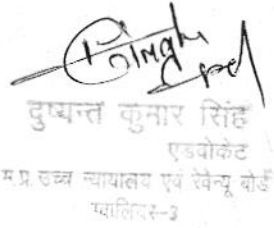 दुष्यन्त कुमार सिंह
एडवोकेट
म.प्र. उच्च न्यायालय एवं रेवेन्यू बोर्ड
ग्वालियर-3